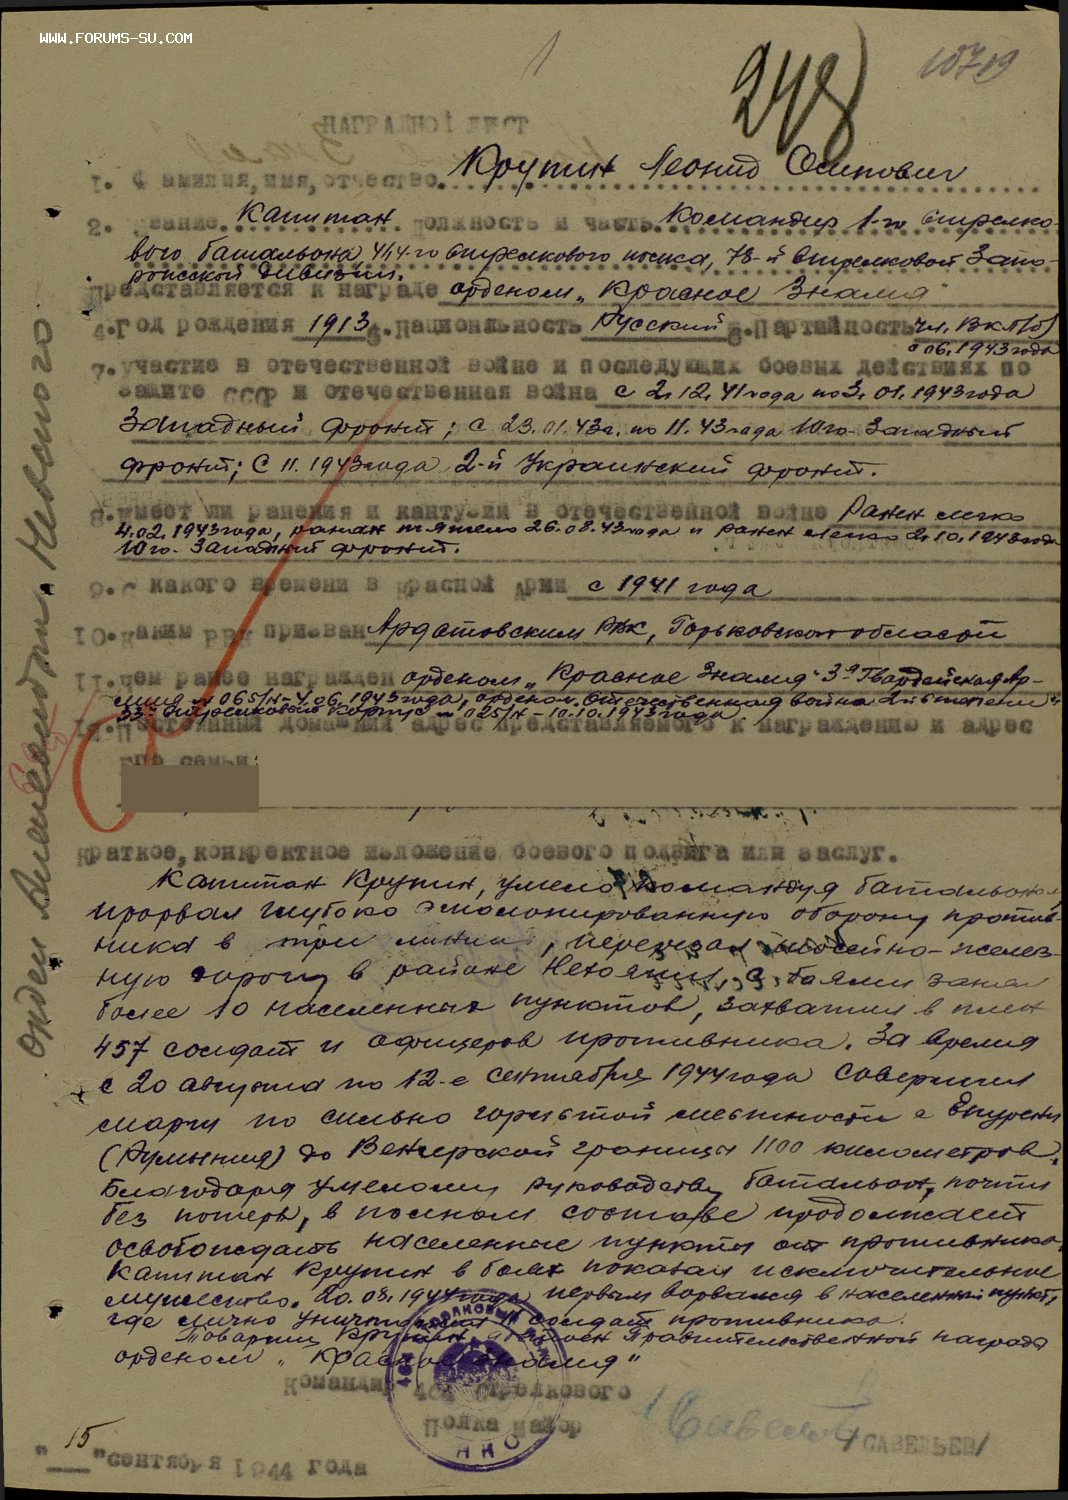 WWW.FORUMS-SU.COM
1
248
НАГРАДНОЙ ЛИСТ
1. Фамилия, имя, отчество. Крупин Леонид Осипович
2. Звание. Капитан Должность и часть. Командир 1-го стрелко-
вого батальона, стрелкового полка, 78-й стрелковой Запо-
рожской дивизии.
Представляется к награде орденом "Красное Знамя"
4. Год рождения 1913 Национальность Русский Партийность чл. ВКП(б)
с 06.1943 года
7. участие в отечественной войне и последующих боевых действиях по
защите СССР и отечественная война с 2.12.41 года по 3.01.1943 года
Западный фронт; с 23.01.43 г. по 11.43 года Юго-Западный
фронт; с 11.1943 года 2-й Украинский фронт.
8. имеет ли ранения и кантузии в отечественной войне Ранен легко
4.02.1943 года, ранен тяжело 26.08.43 года и ранен легко 2.10.1943 года
Юго-Западный фронт.
9. С какого времени в Красной Армии с 1941 года
10. Каким РВК призван Ардатовским РВК, Горьковской области
11. чем ранее награжден орденом "Красное Знамя" 3я Гвардейская Ар-
мия № 065/н - 06.1943 года, орденом Отечественная война 2й степени
33 Стрелковый Корпус № 025/н - 10.10.1943 года
12. Постоянный домашний адрес представляемого к награждению и адрес
его семьи:
Краткое, конкретное изложение боевого подвига или заслуг.
Капитан Крупин, умело командуя батальоном
прорвал глубоко эшолонированную оборону против-
ника в три линии, перерезал шосейно-желез-
ную дорогу в районе с боями занял
более 10 населенных пунктов, захватил в плен
457 солдат и офицеров противника. За время
с 20 августа по 12-е сентября 1944 года совершил
марш по сильно гористой местности с
(Румыния) до Венгерской границы 1100 километров.
Благодаря умелому руководству батальон, почти
без потерь, в полном составе продолжает
освобождать населенные пункты от противника.
Капитан Крупин в боях показал исключительное
мужество. 20.08.1944 года первым ворвался в населенный пункт,
где лично уничтожил солдат противника.
Товарищ Крупин достоин Правительственной награды
орденом "Красное Знамя"
Командир стрелкового
Полка майор
/САВЕЛЬЕВ/
"15" сентября 1944 года
НКО
орден Александра Невского